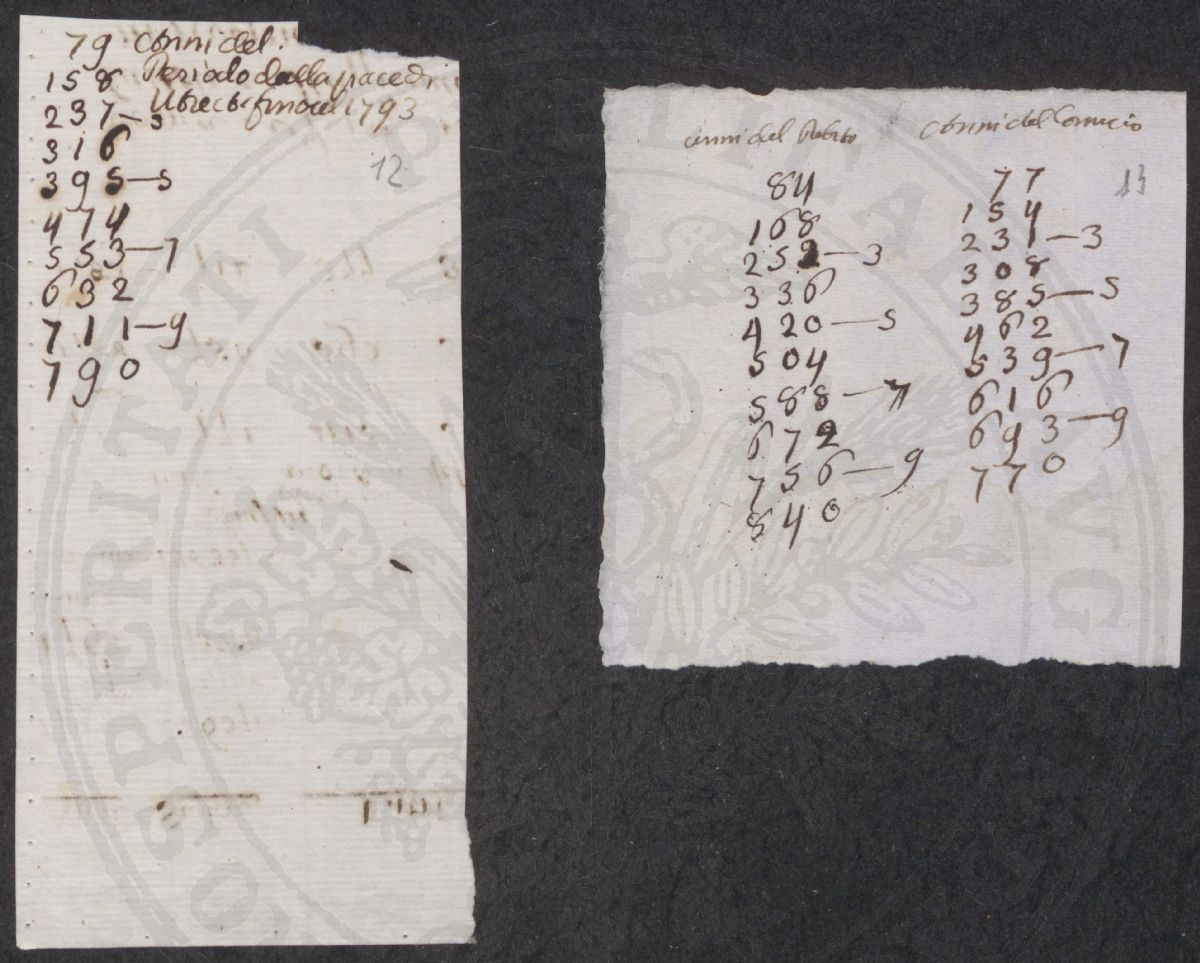 79 anni del
158 Periodo dalla pace di
237-3 Utrect fino al 1793
316
12
395-5
474
553-7
632
711-9
790
anni del Debito
anni del
13
84
77
168
154
252-3
231-3
336
308
420-5
385-5
504
462
588-7
539-7
672
616
756-9
693-9
840
770